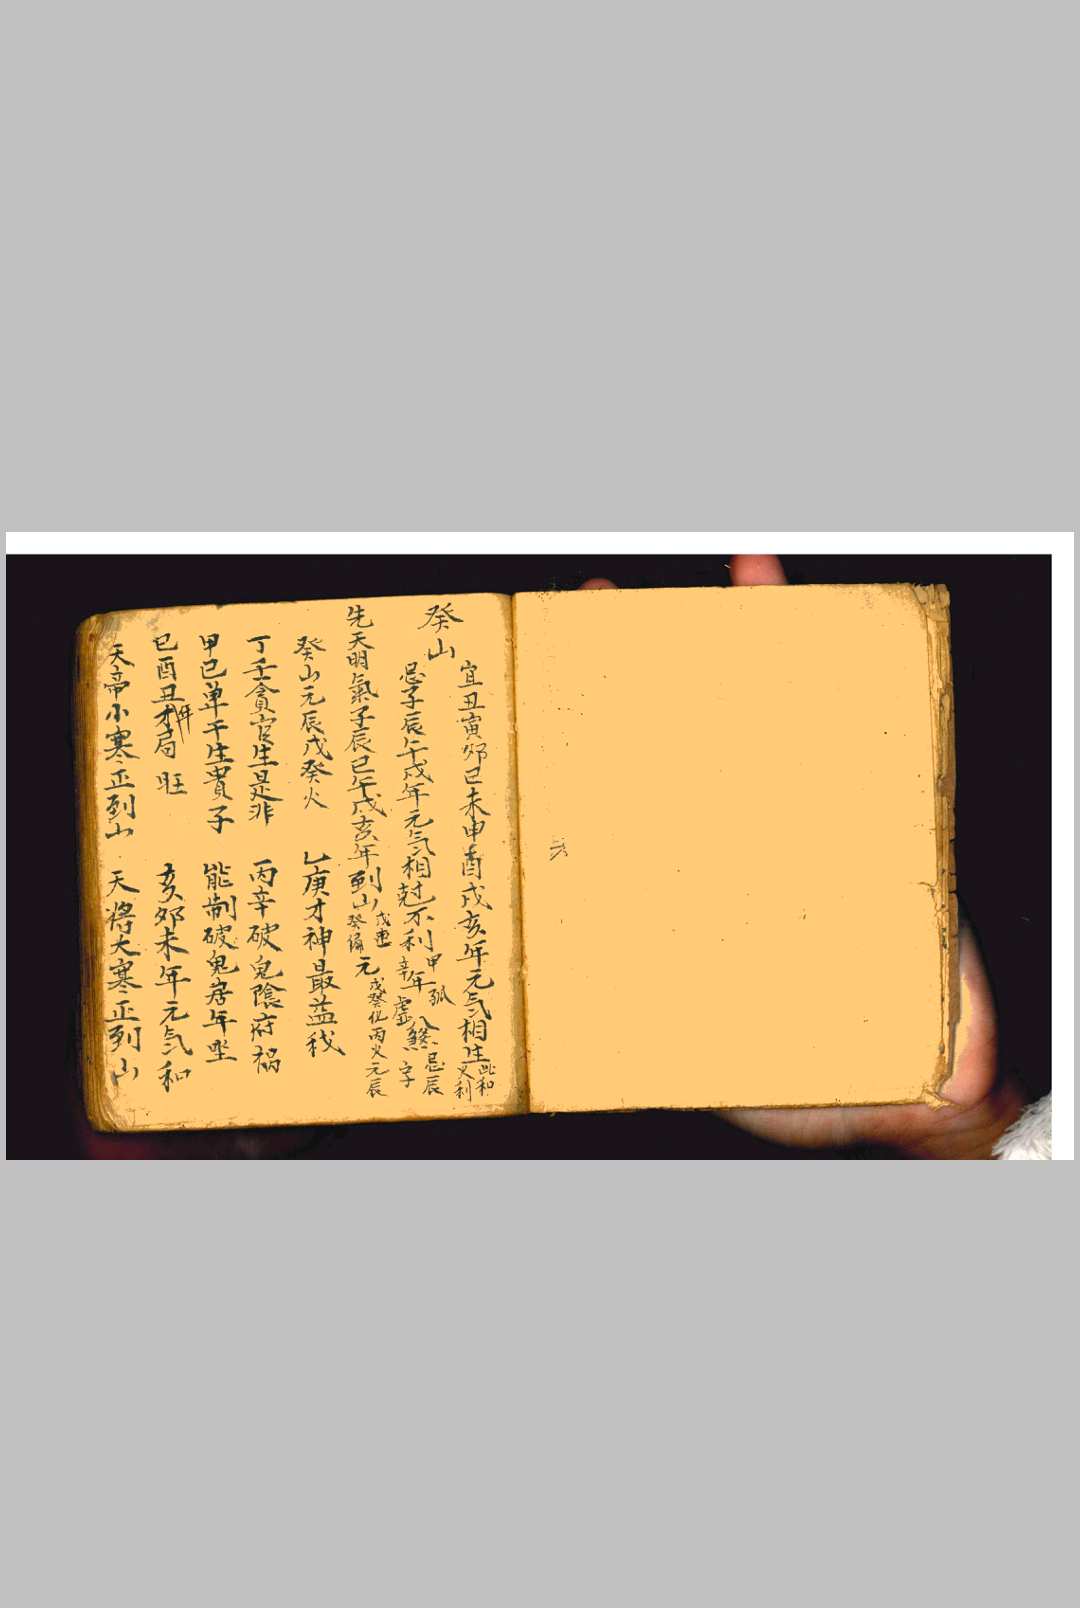 癸山
宜丑寅卯己未申酉戌亥年元气相生此和又利
忌子辰午戌年元气相尅不利甲年孤辛年虛八煞忌辰字
先天明氣子辰巳午戌亥年到山戊癸元戊癸化丙火元辰
癸山元辰戊癸火 乙庚才神最益我
丁壬貪官生是非 丙辛破鬼陰府祸
甲己单干生貴子 能制破鬼房年坐
巳酉丑年才局旺 亥卯未年元气和
天帝小寒正到山 天將大寒正到山